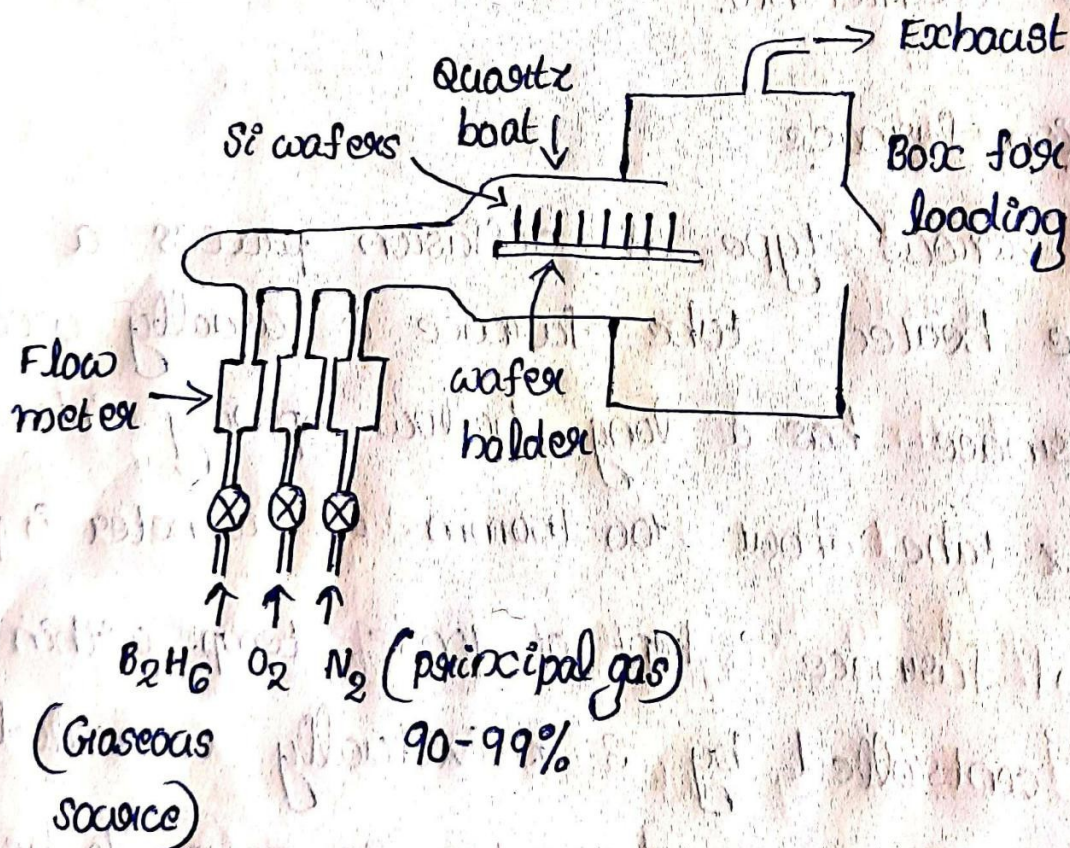 Exhaust
Quartz
boat
Si wafers
Box for
loading
Flow
meter
wafer
holder
B2H6 O2 N2 (principal gas)
(Gaseous 90-99%
source)